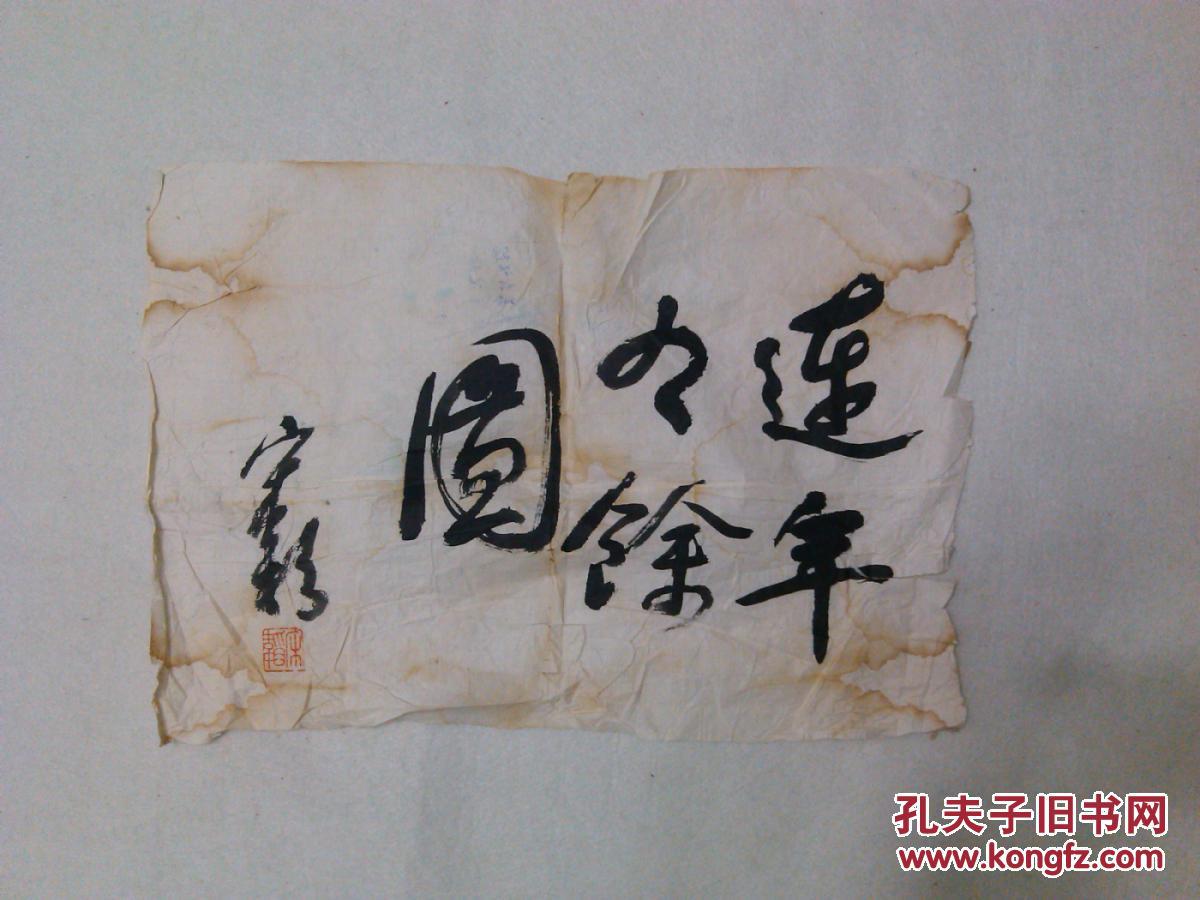 連年
有餘
圖
孔夫子旧书网
www.kongfz.com